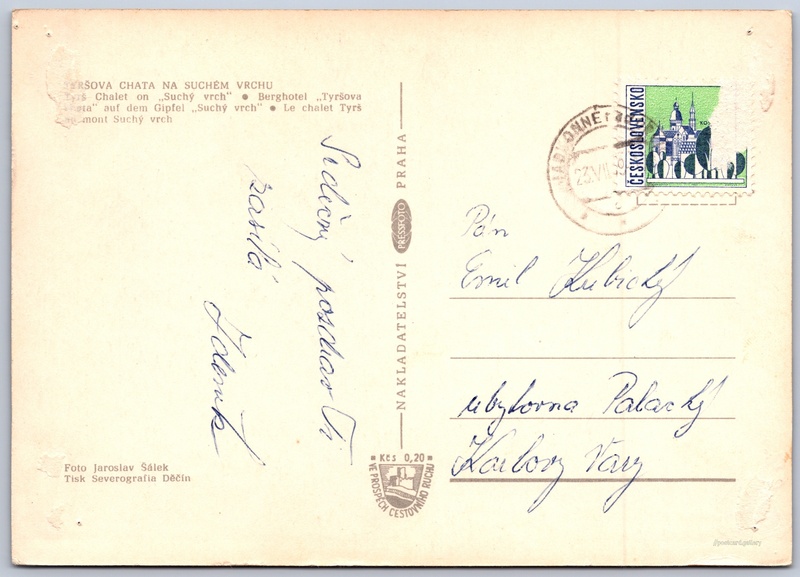 TYRŠOVA CHATA NA SUCHÉM VRCHU
Tyrš Chalet on „Suchý vrch" ● Berghotel „Tyršova
chata" auf dem Gipfel „Suchý vrch" ● Le chalet Tyrš
mont Suchý vrch
Srdečný pozdrav Ti
zasílá
Zdeněk
NAKLADATELSTVÍ PRESSFOTO PRAHA
Kčs 0,20
VE PROSPĚCH CESTOVNÍHO RUCHU
Foto Jaroslav Šálek
Tisk Severografia Děčín
ČESKOSLOVENSKO
JABLONNÉ
23.VII
Pán
Emil Kubický
ubytovna Palacký
Karlovy Vary